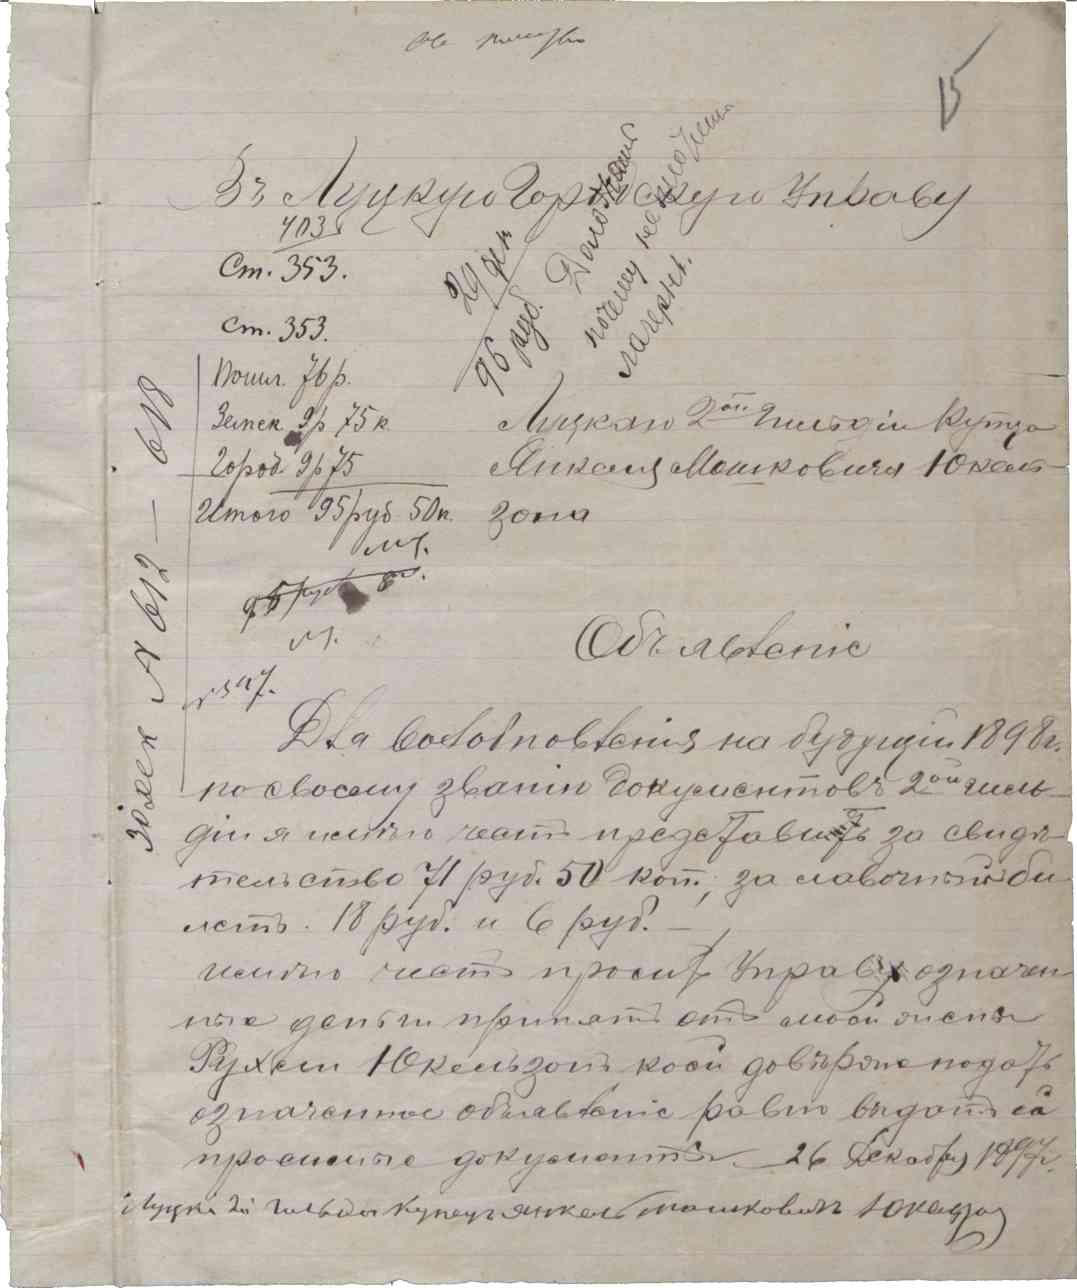 15
Въ Луцкую Городскую Управу
403
Ст. 353.
Ст. 353.
29 дек
96 руб.
почему не
лагерны.
Пошл. 76 р.
Земск. 9 р 75 к.
Город. 9 р 75
Итого 95 руб 50 к.
№ 612 — 618
Луцкаго 2ой Гильдіи Купца
Янкеля Мошковича Юкель-
зона
Объявленіе
Для возобновленія на будущій 1898 г.
по своему званію документовъ 2ой гиль-
діи я имѣю честь представить за свидѣ-
тельство 71 руб. 50 коп., за лавочный би-
летъ 18 руб. и 6 руб. —
имѣю честь просить Управу означен-
ные деньги принять отъ моей жены
Рухли Юкельзонъ коей довѣряю подать
означенное объявленіе равно выдать ей
просимые документы 26 Декабря 1897 г.
Луцкій 2й гильдіи купецъ Янкель Мошковичъ Юкельзон